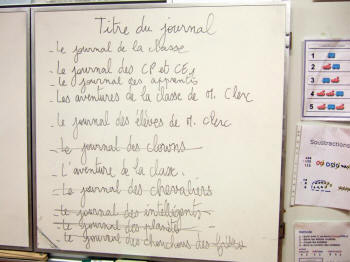 Titre du journal
- Le journal de la classe
- Le journal des CP et CE1
- Le journal des apprentis
- Les aventures de la classe de M. Clerc
- Le journal des élèves de M. Clerc
- Le journal des clowns
- L'aventure de la classe.
- Le journal des chevaliers
- Le journal des intelligents
- Le journal des planètes
- Le journal des chouchous des
1
2
3
4
5
Soustractions